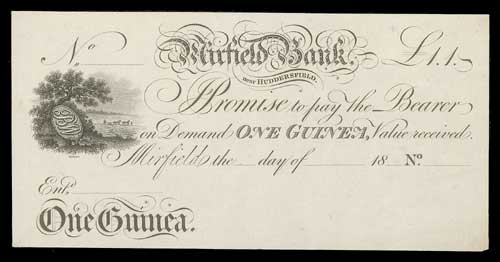 No Mirfield Bank. £1.1.-
near HUDDERSFIELD.
I Promise to pay the Bearer
on Demand ONE GUINEA, Value received.
Mirfield the day of 18 No
Entd.
One Guinea.